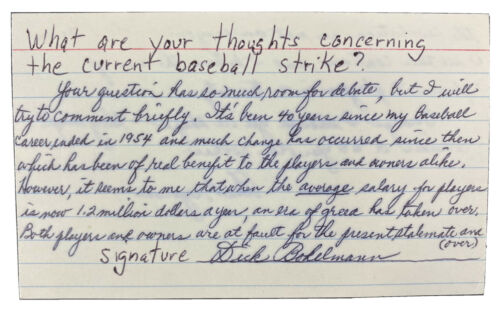 What are your thoughts concerning
the current baseball strike?
Your question has so much room for debate, but I will
try to comment briefly. It's been 40 years since my baseball
career ended in 1954 and much change has occurred since then
which has been of real benefit to the players and owners alike.
However, it seems to me that when the average salary for players
is now 1.2 million dollars a year, an era of greed has taken over.
Both players and owners are at fault for the present stalemate and
(over)
Signature Dick Bokelmann